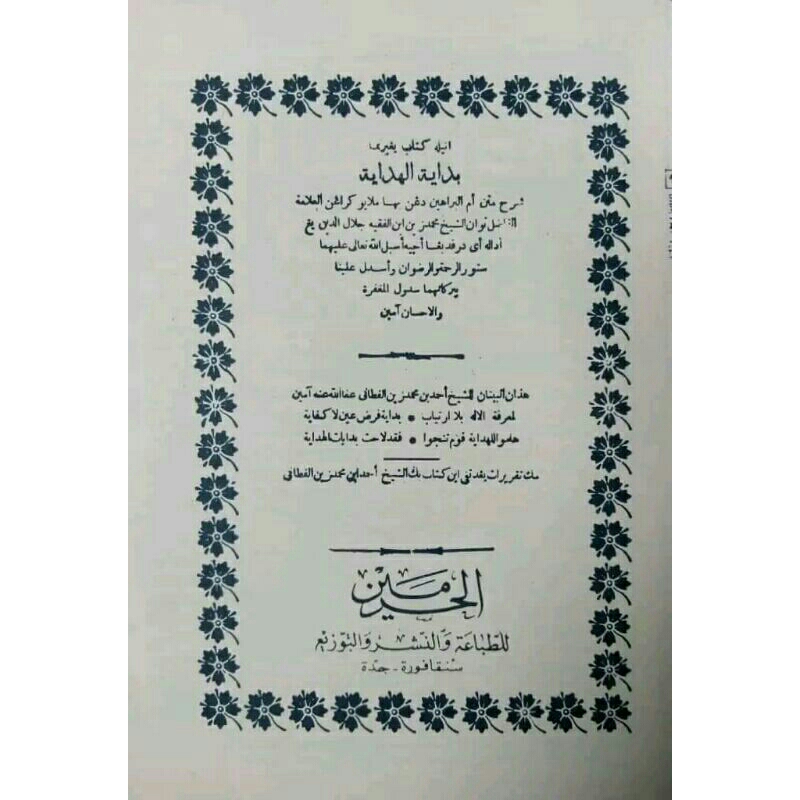 اينله كتاب يغبرنما
بداية الهداية
شرح متن أم البراهين دغن بهسا ملايو كراغن العلامة
الفاضل توان الشيخ محمد زين ابن الفقيه جلال الدين يغ
اداله اي در فد بغسا أچيه أسبل الله تعالى عليهما
ستور الرحمة والرضوان وأسدل علينا
ببركاتهما سدول المغفرة
والاحسان آمين
هذان البيتان للشيخ أحمد بن محمد زين الفطاني عفا الله عنه آمين
لمعرفة الاله بلا ارتياب • بداية فرض عين لا كفاية
هلموا للهداية قوم تنجوا • فقد لاحت بدايات الهداية
مك تقريرات يغد تفي اين كتاب بك الشيخ أحمد ابن محمد زين الفطاني
الحرمين
للطباعة والنشر والتوزيع
سنقافورة - جدة